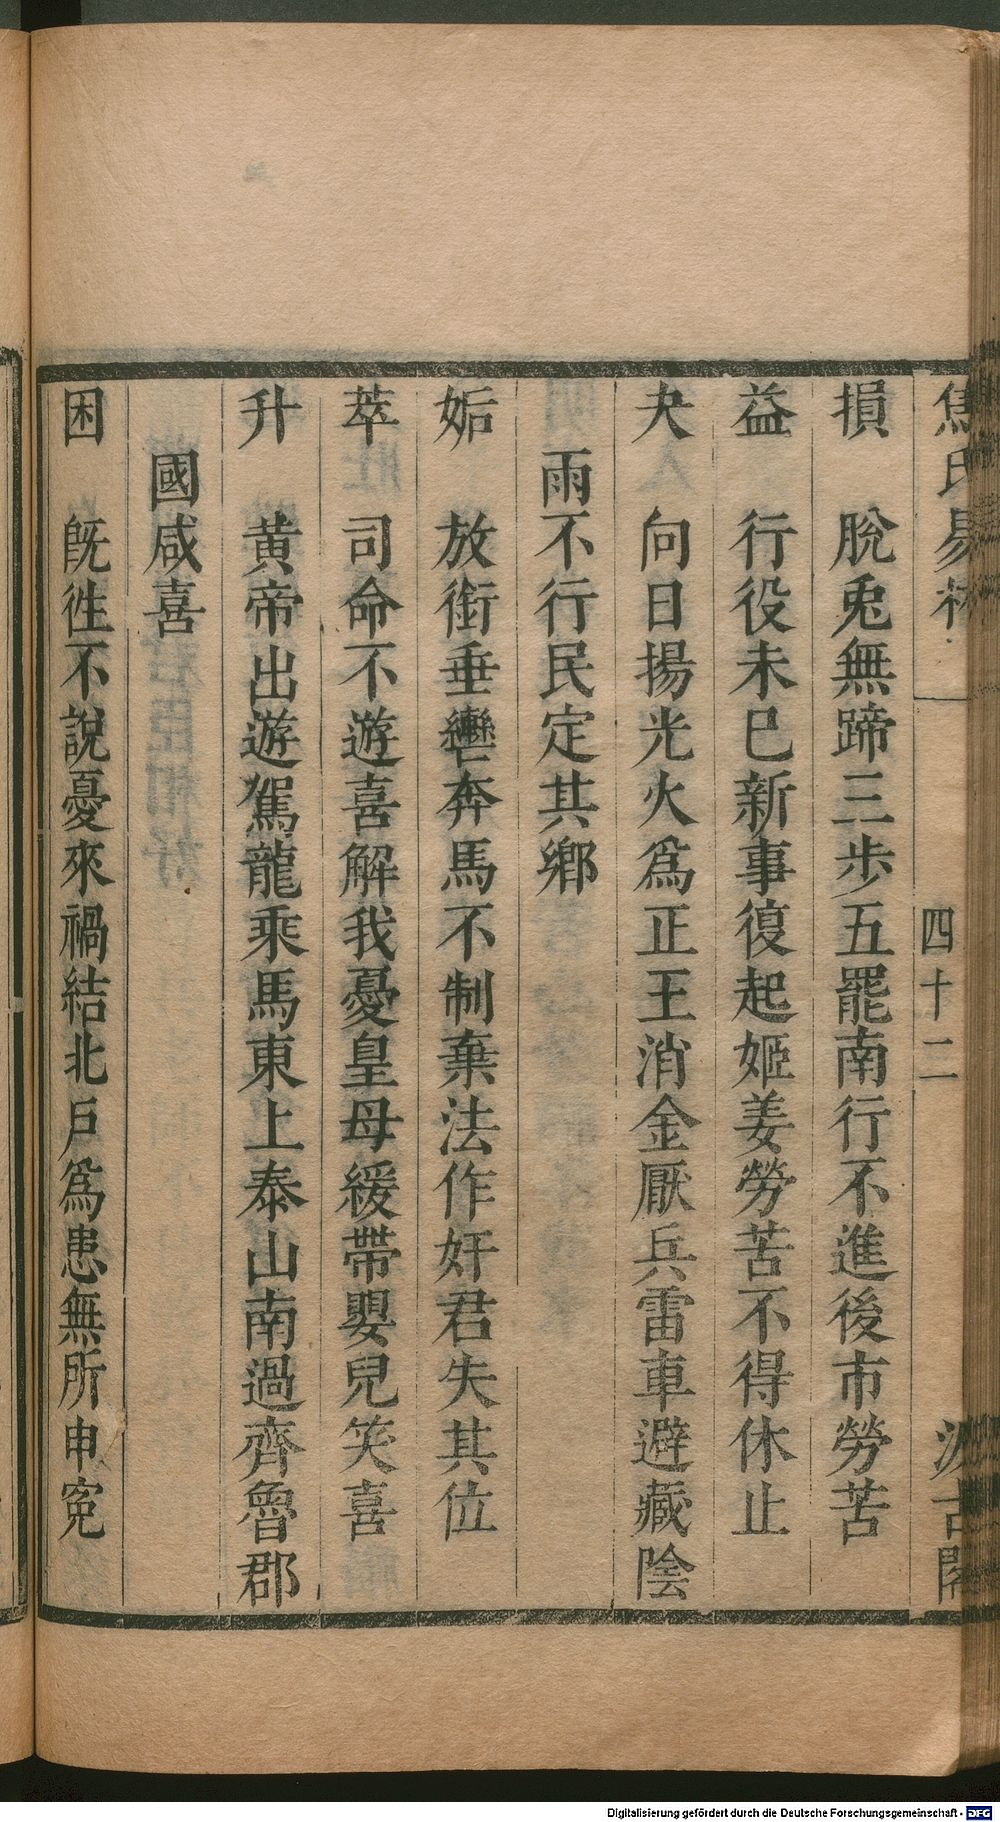 焦氏易林 四十二 汲古閣
損 脫兎無蹄三步五罷南行不進後市勞苦
益 行役未巳新事復起姬姜勞苦不得休止
夬 向日揚光火爲正王消金厭兵雷車避藏陰
雨不行民定其鄉
姤 放銜垂轡奔馬不制棄法作奸君失其位
萃 司命不遊喜解我憂皇母緩帶嬰兒笑喜
升 黃帝出遊駕龍乘馬東上泰山南過齊魯郡
國咸喜
困 旣徃不說憂來禍結北戶爲患無所申寃
Digitalisierung gefördert durch die Deutsche Forschungsgemeinschaft - DFG